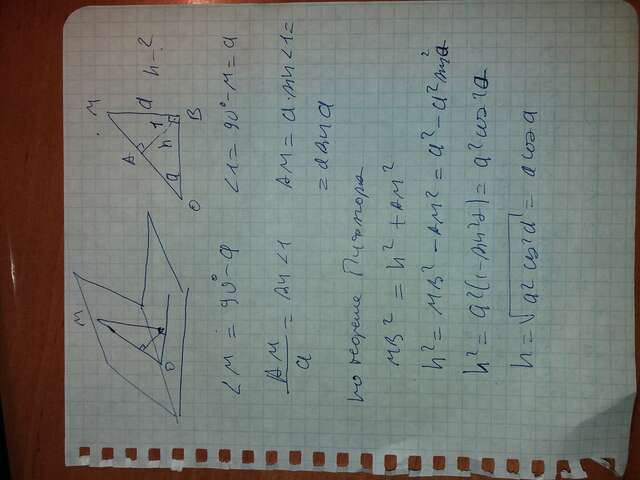 M
O
M
A
1
d
h
h - ?
α
O
B
∠M = 90° - α
∠1 = 90° - M = α
AM/d = sin ∠1
AM = d · sin ∠1 =
= d sin α
по теореме Пифагора
MB² = h² + AM²
h² = MB² - AM² = d² - d² sin²α
h² = d²(1 - sin²α) = d² cos²α
h = √d² cos²α = d cos α